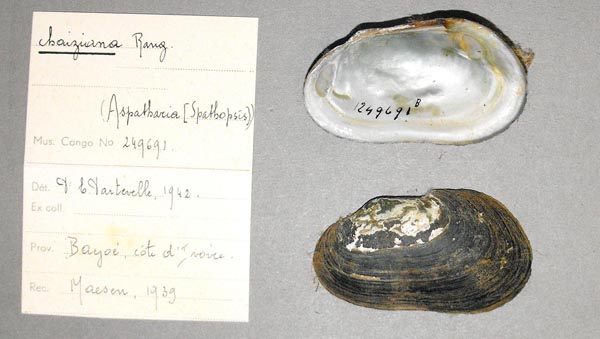 chaiziana Rang.
(Aspatharia [Spathopsis])
Mus. Congo No 249691.
Dét. Dr E Dartevelle, 1942.
Ex coll.
Prov. Bayoé, côte d'Ivoire.
Rec. Maesen, 1939
1249691 B